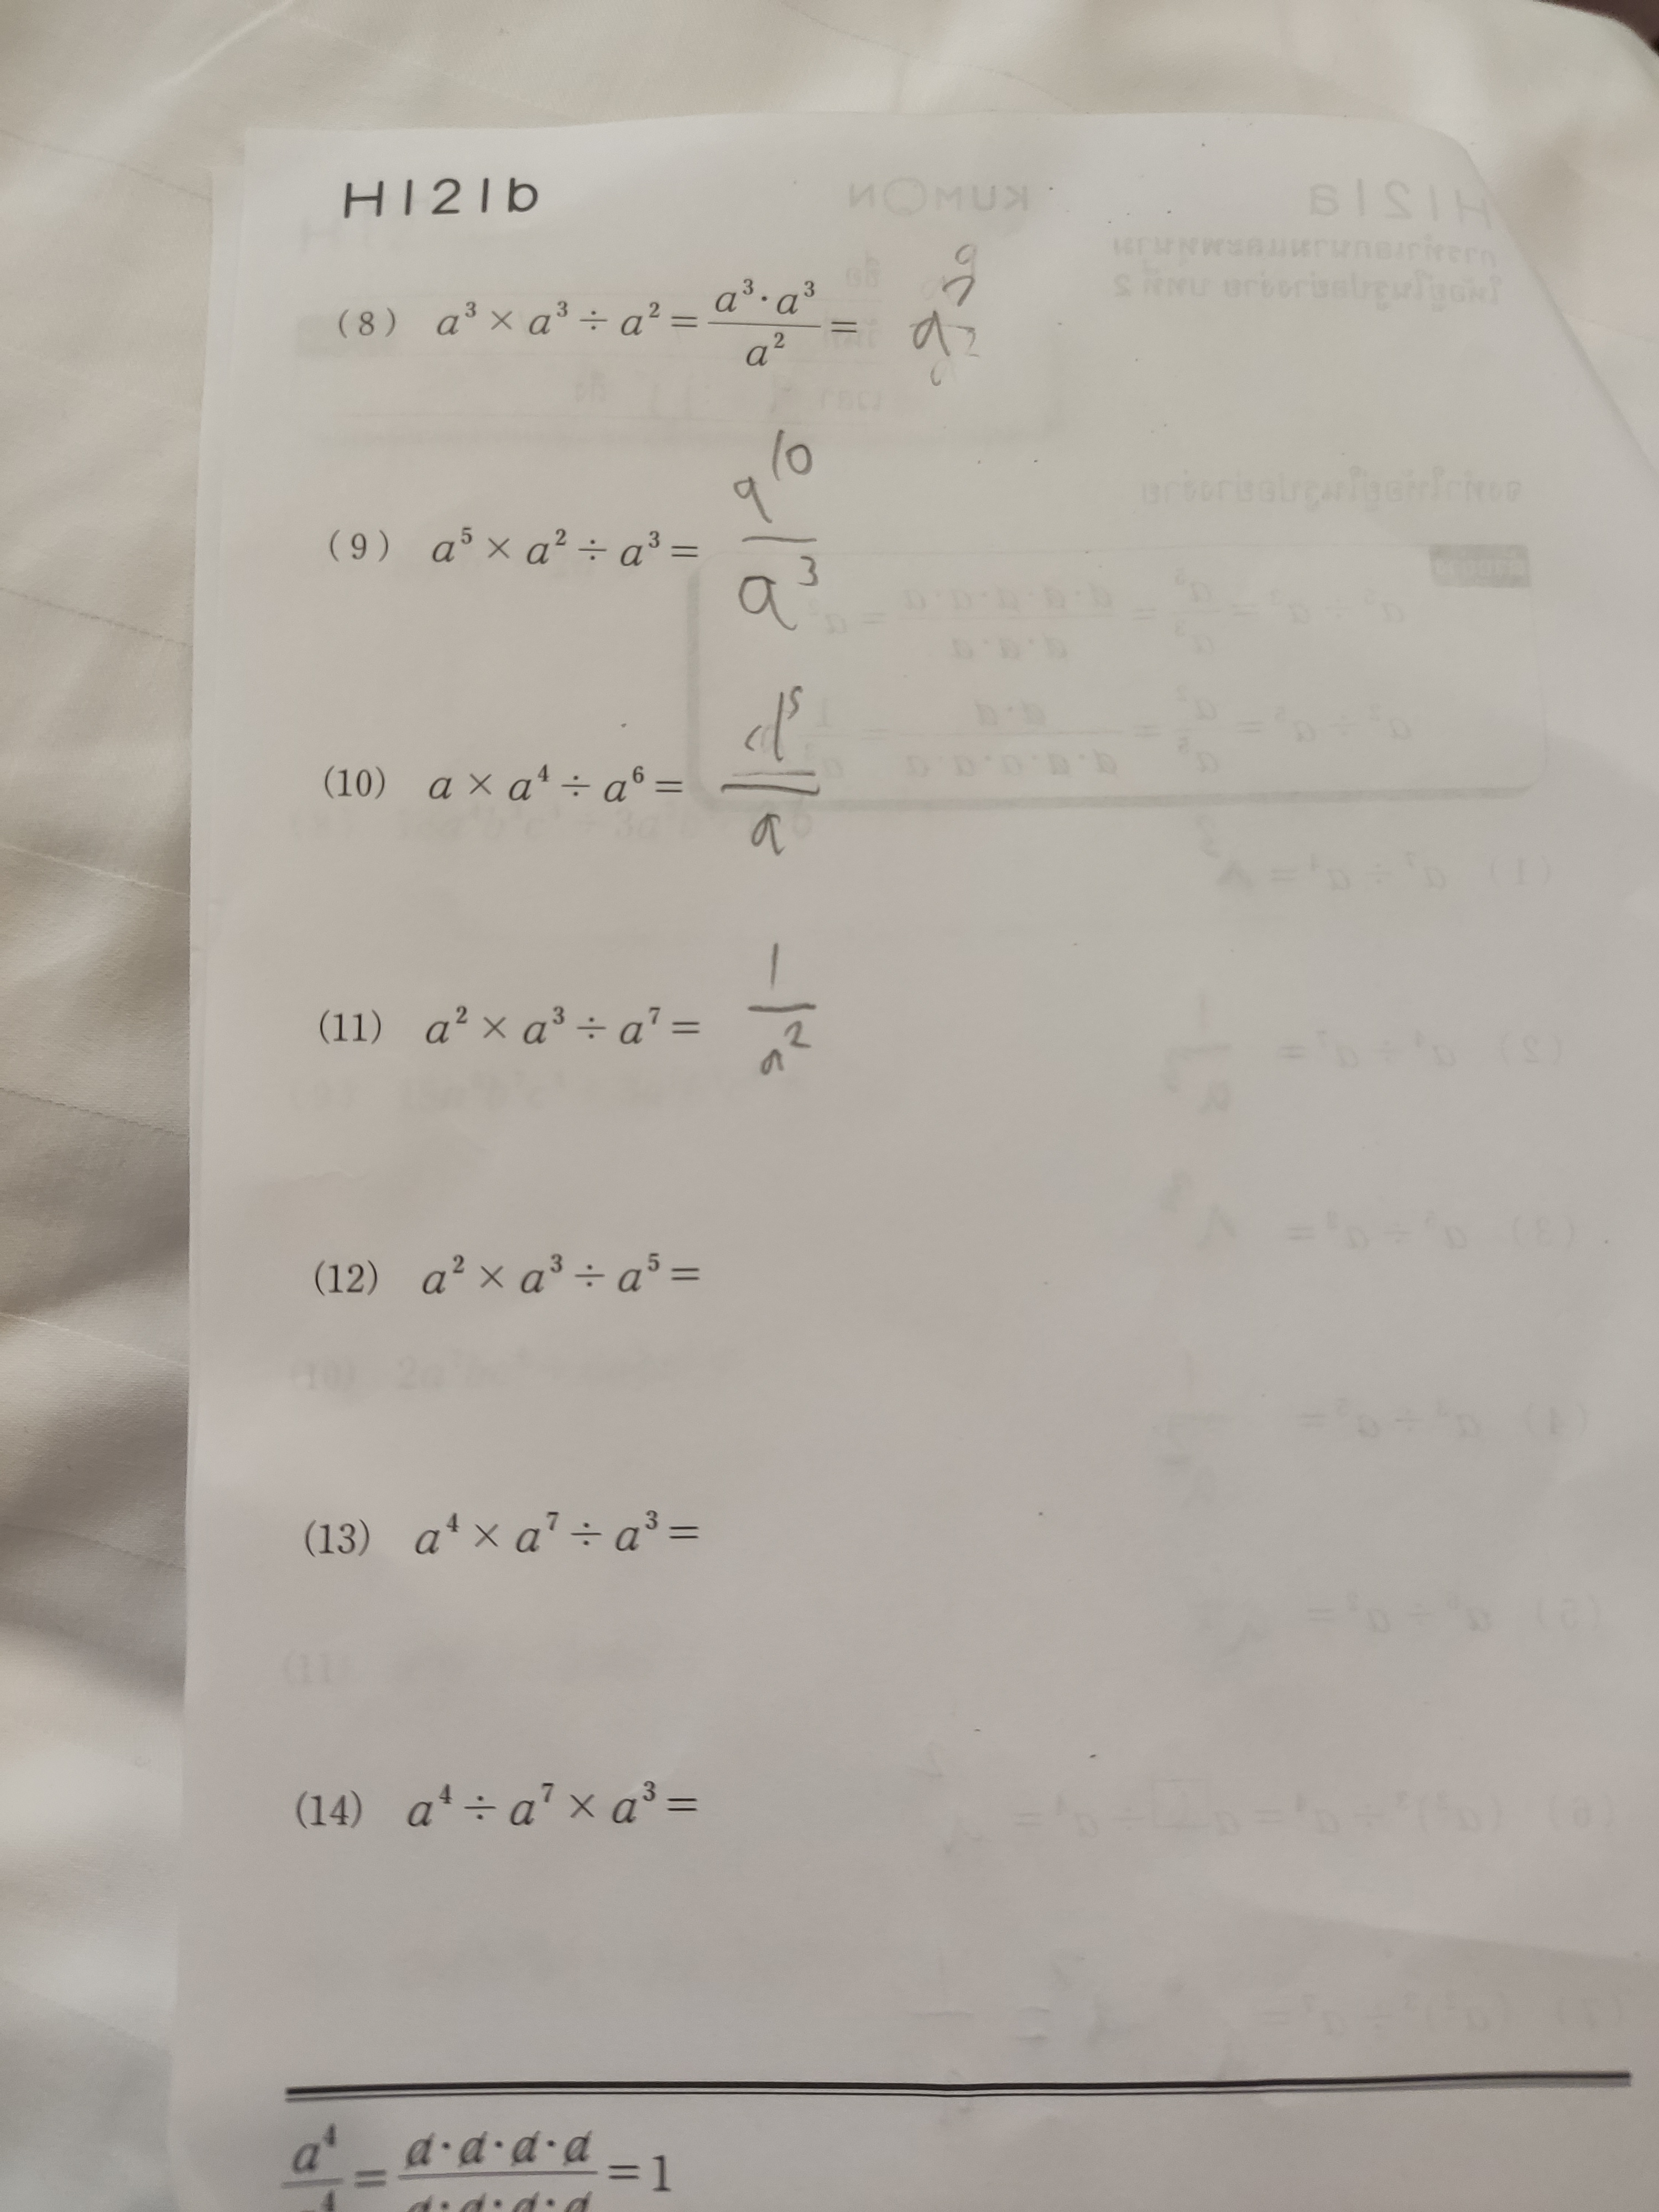 H121b
(8) a³ × a³ ÷ a² = a³·a³/a² =
(9) a⁵ × a² ÷ a³ = a¹⁰/a³
(10) a × a⁴ ÷ a⁶ = a⁵/a
(11) a² × a³ ÷ a⁷ = 1/a²
(12) a² × a³ ÷ a⁵ =
(13) a⁴ × a⁷ ÷ a³ =
(14) a⁴ ÷ a⁷ × a³ =
a⁴/a⁴ = a·a·a·a/a·a·a·a = 1